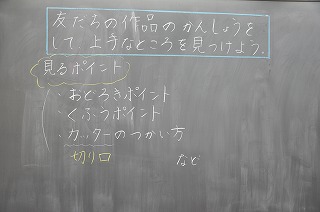 友だちの作品のかんしょうを
して、上手なところを見つけよう。
見るポイント
・おどろきポイント
・くふうポイント
・カッターのつかい方
切り口 など